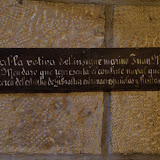 la votiva del insigne marino Juan
Mendaro que representa el combate naval que
cerca del estrecho de Gibraltar entre españoles y